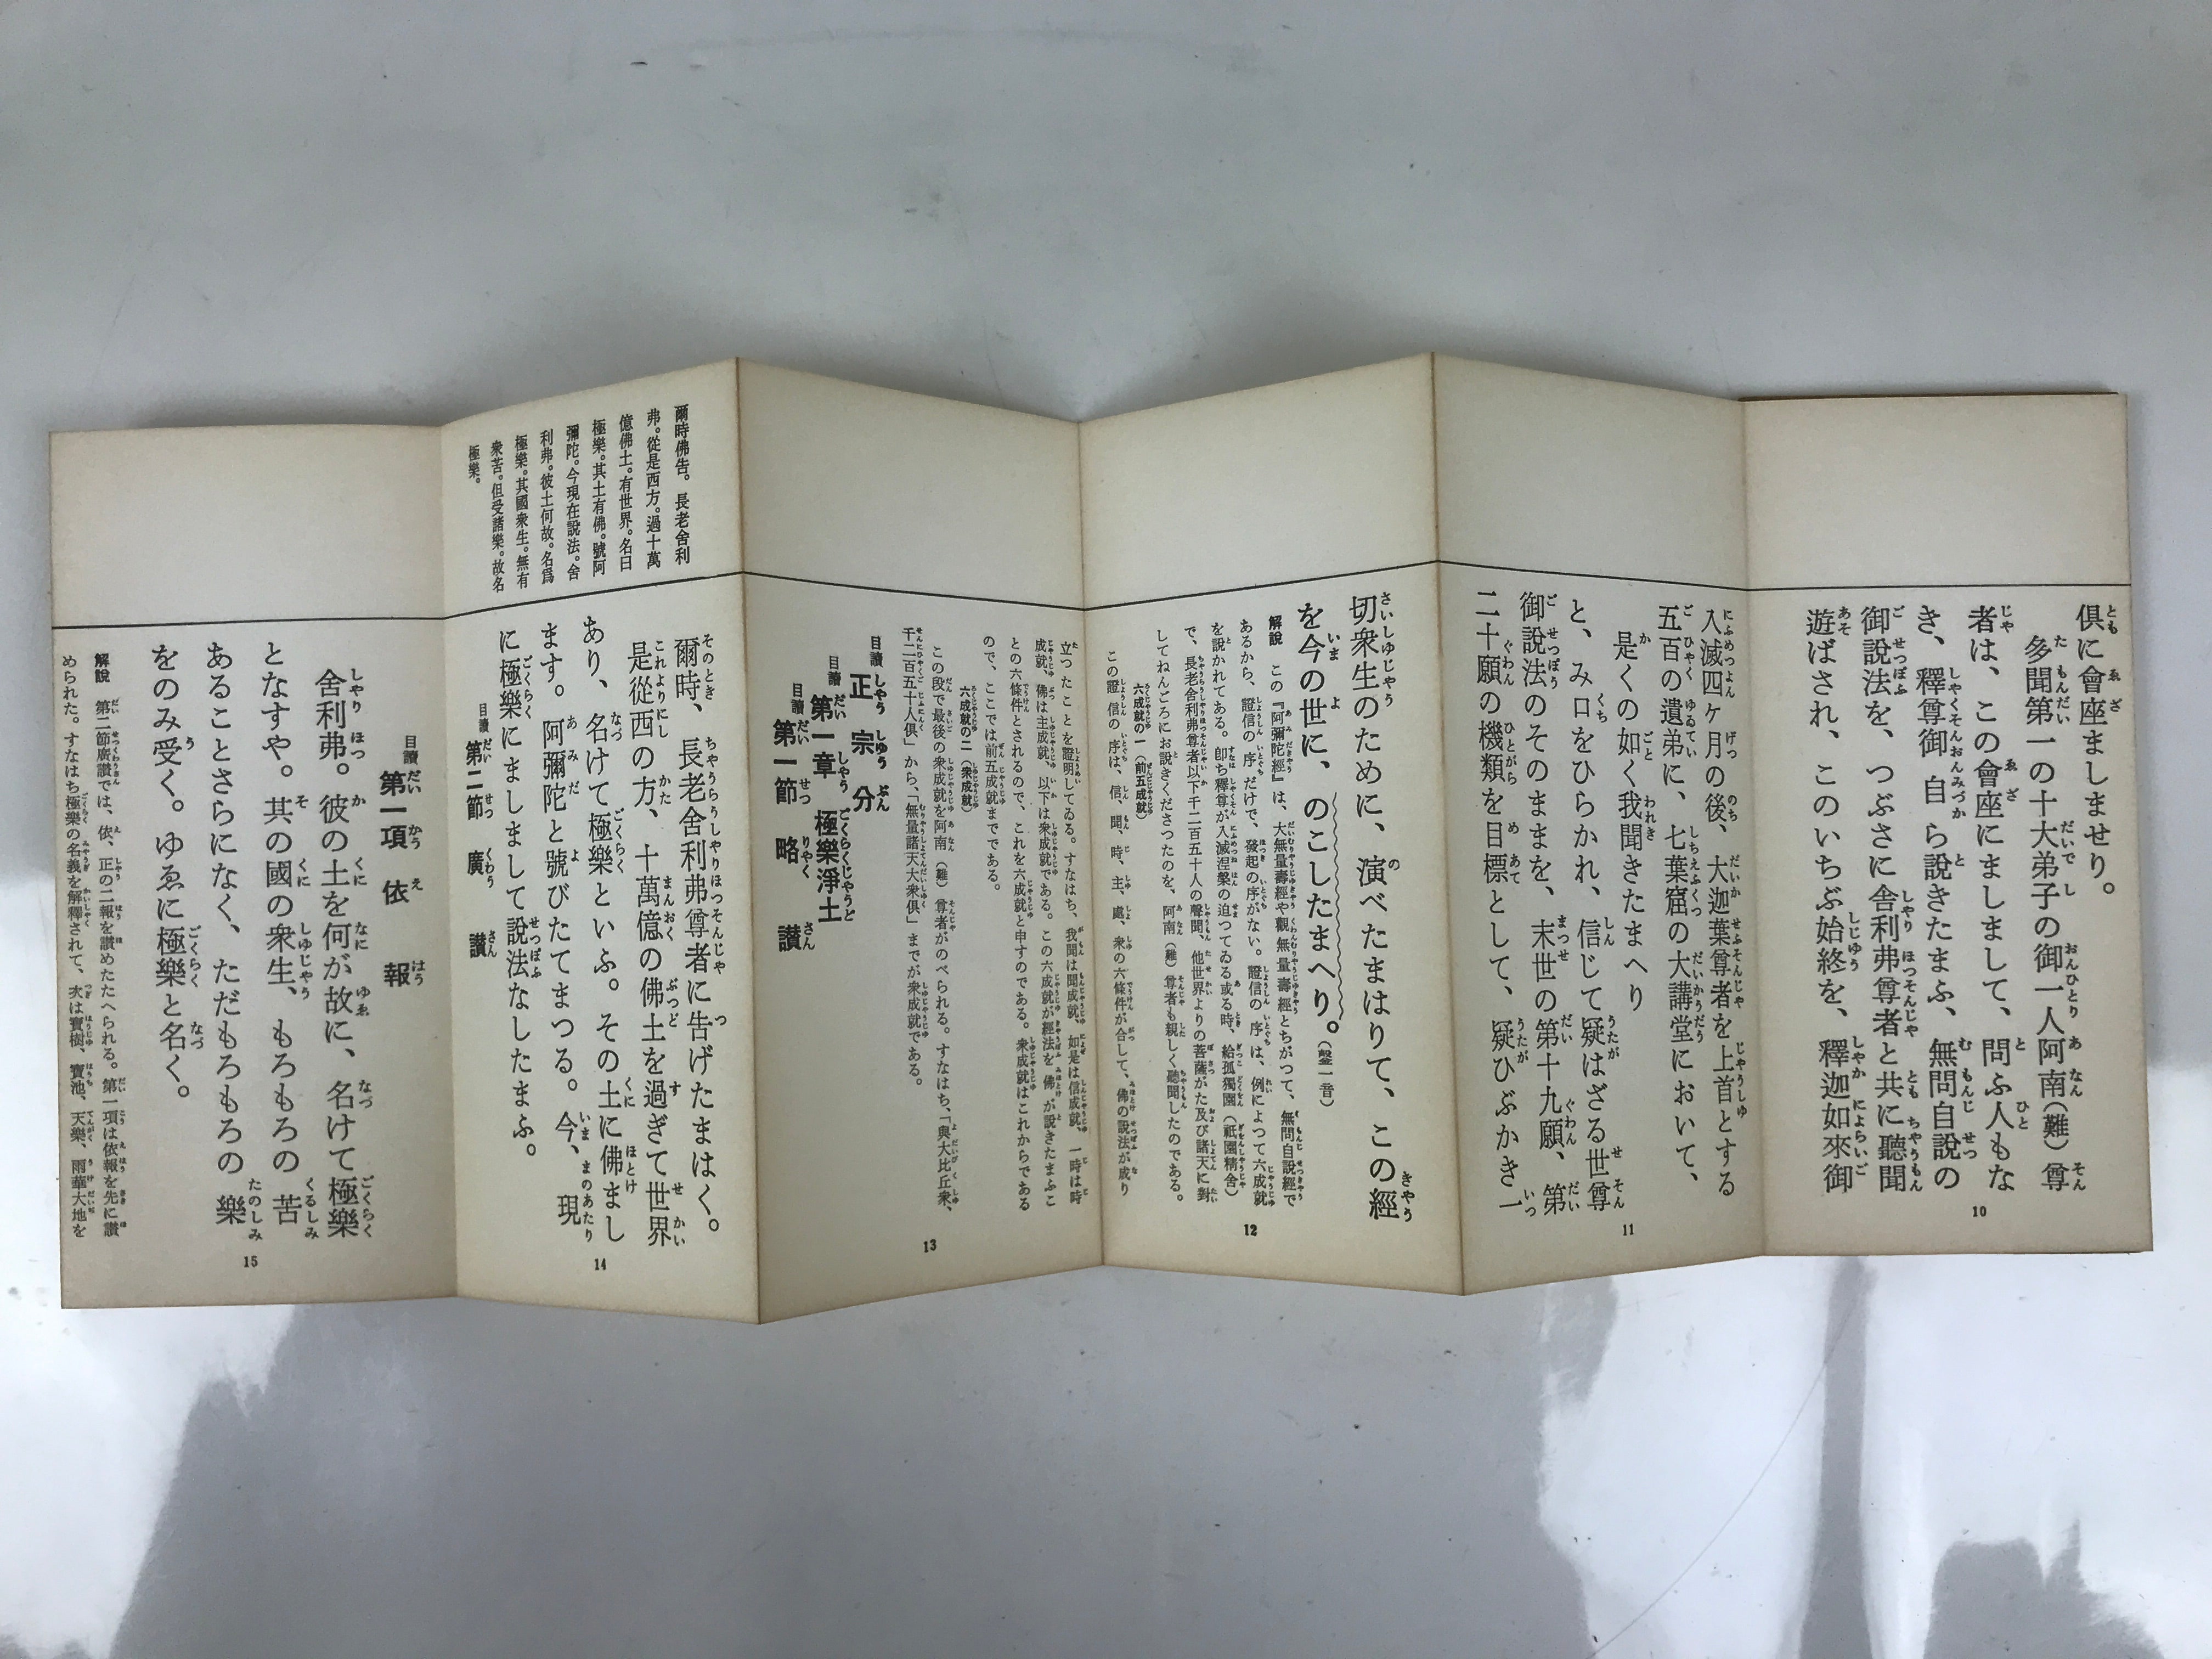 俱に會座ましませり。
多聞第一の十大弟子の御一人阿南（難）尊
者は、この會座にましまして、問ふ人もな
き、釋尊御自ら說きたまふ、無問自說の
御說法を、つぶさに舍利弗尊者と共に聽聞
遊ばされ、このいちぶ始終を、釋迦如來御
10
入滅四ヶ月の後、大迦葉尊者を上首とする
五百の遺弟に、七葉窟の大講堂において、
是くの如く我聞きたまへり
と、み口をひらかれ、信じて疑はざる世尊
御說法のそのままを、末世の第十九願、第
二十願の機類を目標として、疑ひぶかき一
11
切衆生のために、演べたまはりて、この經
を今の世に、のこしたまへり。（鏧一音）
解說　この『阿彌陀經』は、大無量壽經や觀無量壽經とちがつて、無問自說經で
あるから、證信の序だけで、發起の序がない。證信の序は、例によつて六成就
を說かれてある。卽ち釋尊が入滅涅槃の迫つてゐる或る時、給孤獨園（祇園精舍）
で、長老舍利弗尊者以下千二百五十人の聲聞、他世界よりの菩薩がた及び諸天に對
してねんごろにお說きくださつたのを、阿南（難）尊者も親しく聽聞したのである。
六成就の一（前五成就）
この證信の序は、信、聞、時、主、處、衆の六條件が合して、佛の說法が成り
12
立つたことを證明してゐる。すなはち、我聞は聞成就、如是は信成就、一時は時
成就、佛は主成就、以下は衆成就である。この六成就が經法を佛が說きたまふこ
との六條件とされるので、これを六成就と申すのである。衆成就はこれからである
ので、ここでは前五成就までである。
六成就の二（衆成就）
この段で最後の衆成就を阿南（難）尊者がのべられる。すなはち、「與大比丘衆、
千二百五十人俱」から、「無量諸天大衆俱」までが衆成就である。
目讀　正宗分
目讀　第一章　極樂淨土
目讀　第一節　略讃
13
爾時佛告。長老舍利
弗。從是西方。過十萬
億佛土。有世界。名曰
極樂。其土有佛。號阿
彌陀。今現在說法。舍
利弗。彼土何故。名爲
極樂。其國衆生。無有
衆苦。但受諸樂。故名
極樂。
爾時、長老舍利弗尊者に告げたまはく。
是從西の方、十萬億の佛土を過ぎて世界
あり、名けて極樂といふ。その土に佛まし
ます。阿彌陀と號びたてまつる。今、現
に極樂にましまして說法なしたまふ。
目讀　第二節　廣讃
14
目讀　第一項　依報
舍利弗。彼の土を何が故に、名けて極樂
となすや。其の國の衆生、もろもろの苦
あることさらになく、ただもろもろの樂
をのみ受く。ゆゑに極樂と名く。
解說　第二節廣讃では、依、正の二報を讃めたたへられる。第一項は依報を先に讃
められた。すなはち極樂の名義を解釋されて、次は寶樹、寶池、天樂、雨華大地を
15